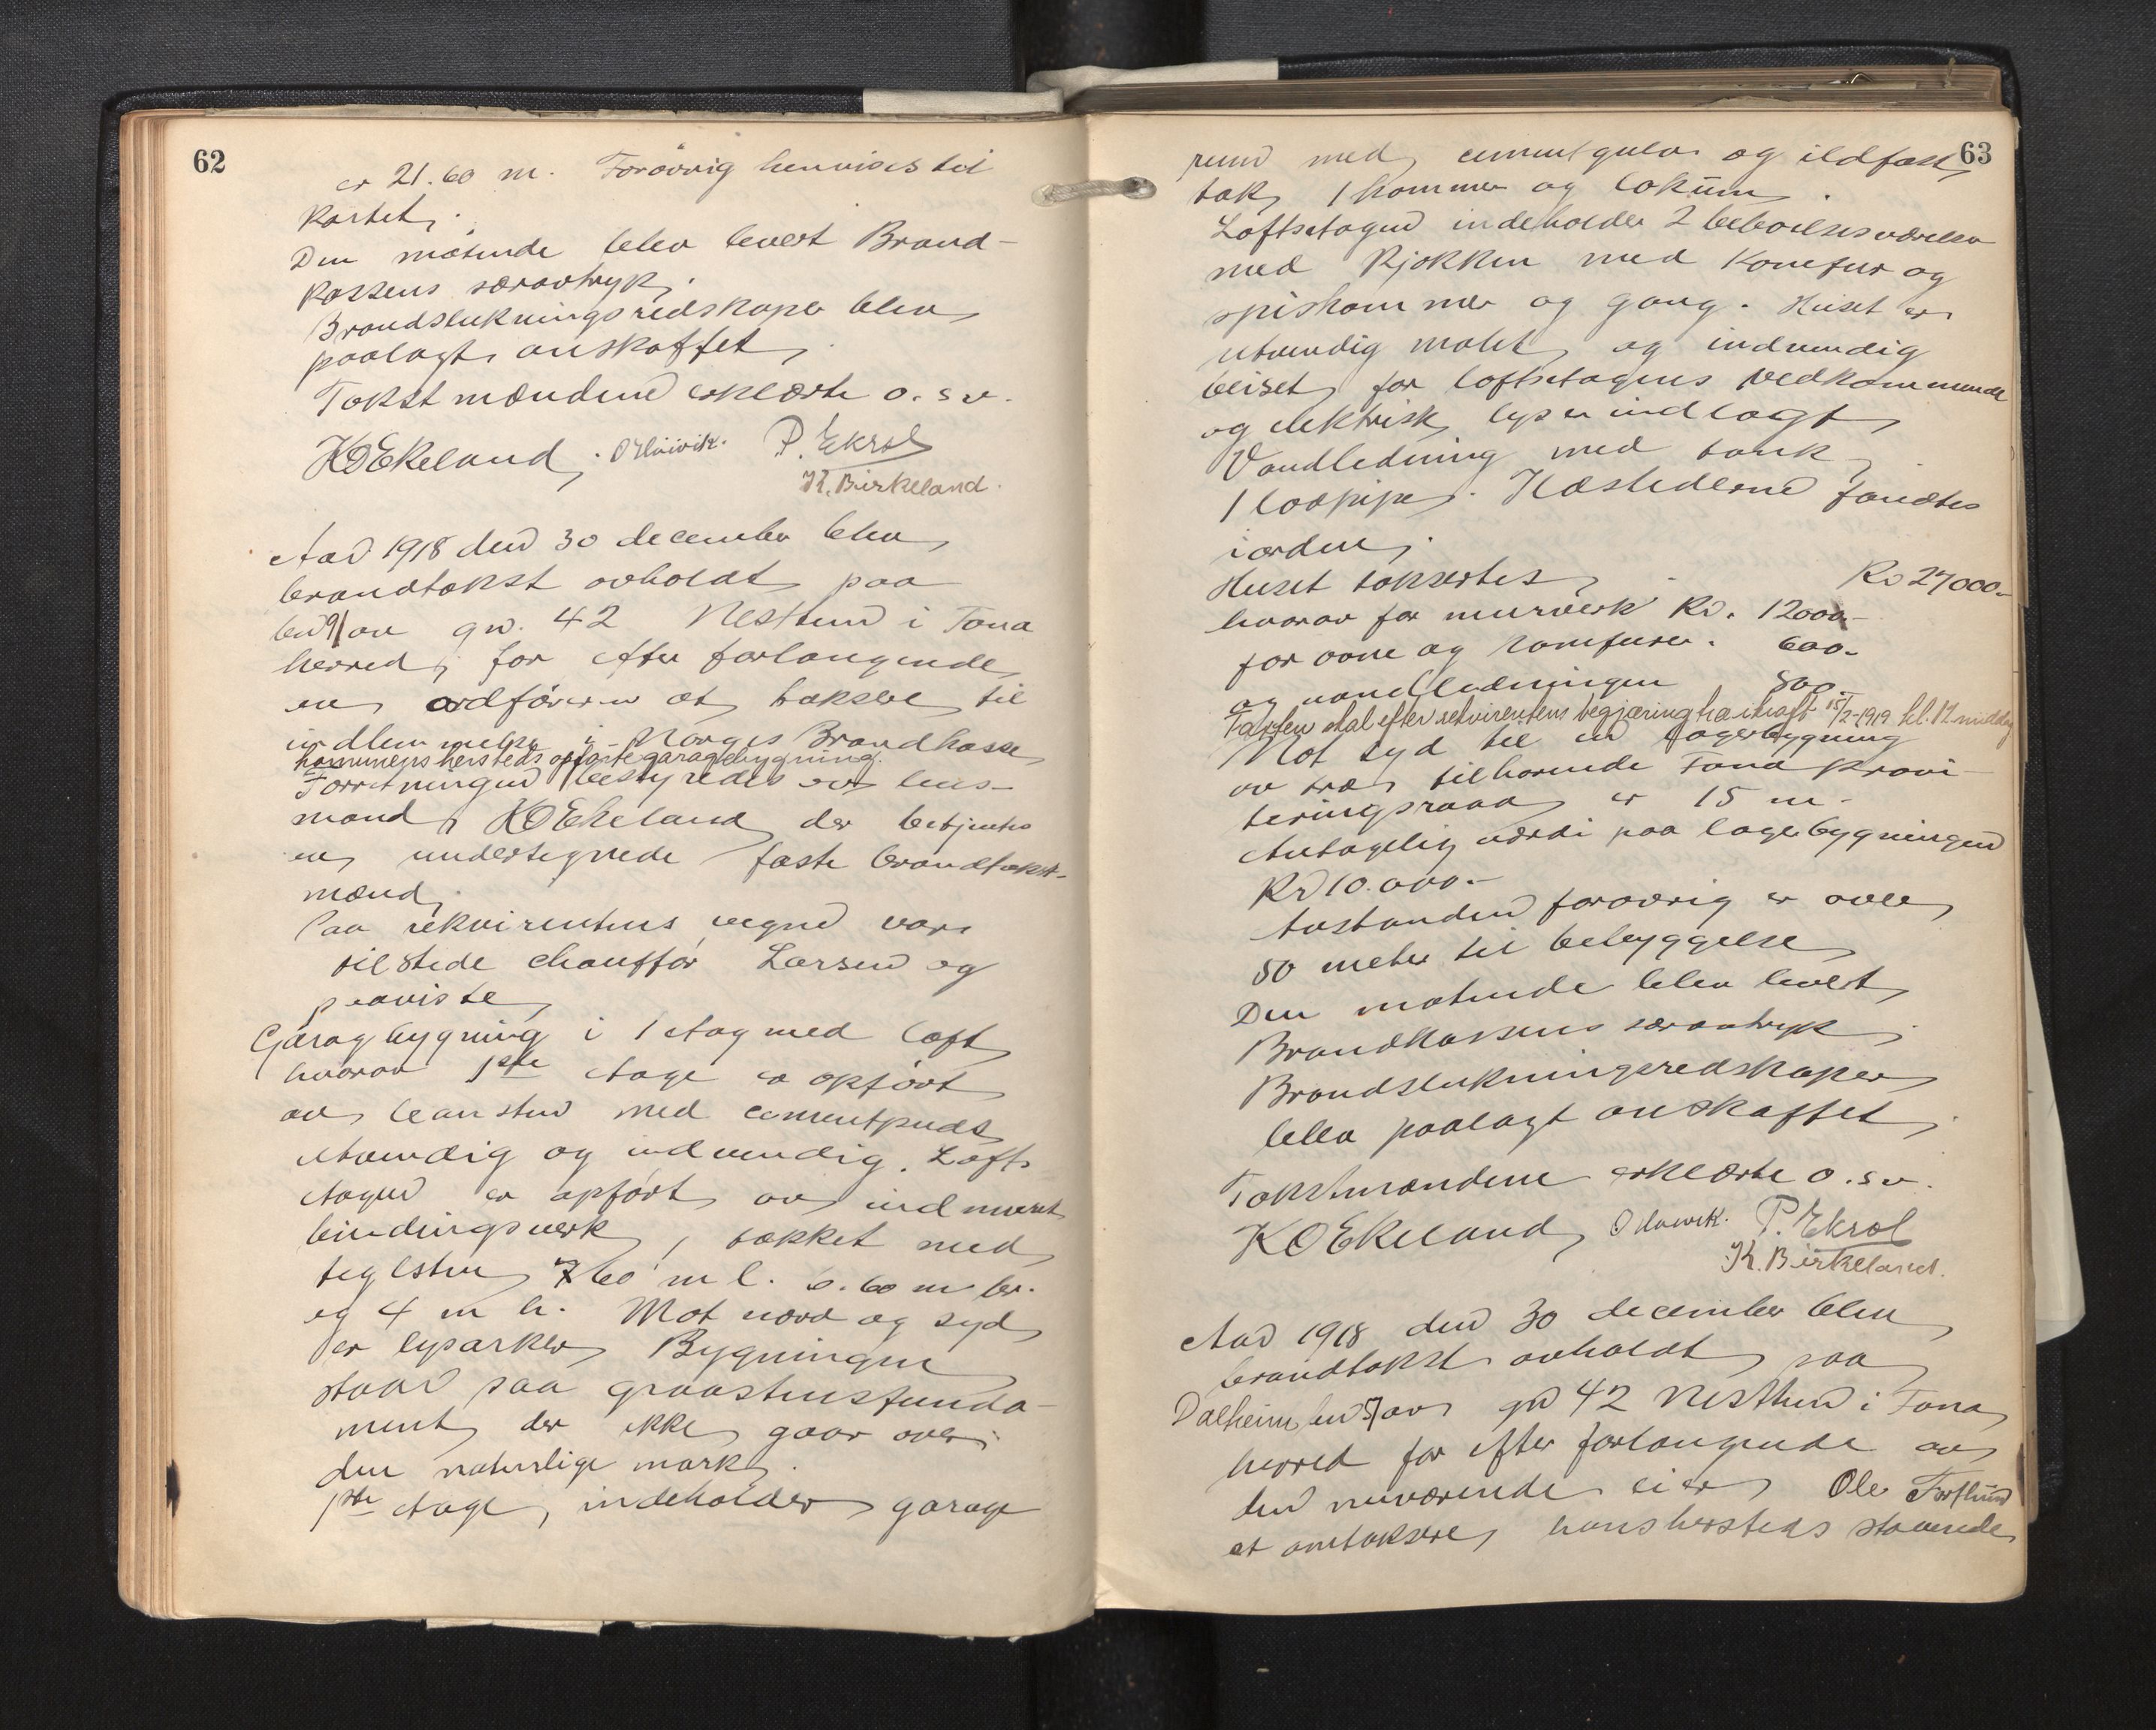 62
er 21.60 m. Forøvrig henvises til
kartet.
Den møtende blev levert Brand-
kassens særavtryk.
Brandslukningsredskaper blev
paalagt anskaffet.
Takstmændene erklærte o.s.v.
K O Ekeland. P. Ekrol
K. Birkeland.
Aar 1918 den 30 december blev
brandtakst avholdt paa
br 91 av gn. 42 Nesttun i Fana
herred, for efter forlangende
av ordføreren at taksere til
indlemmelse i Norges Brandkasse
kommunens hersteds opførte garagebygning.
Forretningen bestyredes av lens-
mand K O Ekeland der betjentes
av undertegnede faste brandtakst-
mænd.
Paa rekvirentens vegne var
tilstede chauffør Larsen og
paaviste
Garagbygning i 1 etag med loft
hvorav 1ste etage er opført
av betonsten med cementpuds
utvendig og indvendig. Lofts
etagen er opført av indmuret
bindingsverk, tækket med
teglsten 7.60 m l. 6.60 m br.
og 4 m h. Mot nord og syd
er lysarker. Bygningen
staar paa graastensfunda-
ment, der ikke gaar over
den naturlige mark.
1ste etage, indeholder garage
63
rum med cementgulv og ildfast
tak, 1 kammer og lokum.
Loftsetagen indeholder 2 beboelsesværelser
med kjøkken med komfur og
spiskammer og gang. Huset er
utvendig malet og indvendig
beiset for loftsetagens vedkommende
og elektrisk lys er indlagt.
Vandledning med tank.
1 løspipe. Ildstederne fandtes
iorden.
Huset taksertes Kr 27000.-
hvorav for murverk Kr. 12000.-
for ovne og komfurer. 600.-
og vandledningen 500
Taksten skal efter rekvirentens begjæring ha ikraft 15/2-1919 kl. 12 middag
Mot syd til en lagerbygning
av træ tilhørende Fana Provi-
anteringsraad er 15 m.
Antagelig værdi paa lagerbygningen
Kr 10.000.-
Avstanden forøvrig er over
50 meter til bebyggelse.
Den møtende blev levert
Brandkassens særavtryk.
Brandslukningsredskaper
blev paalagt anskaffet.
Takstmændene erklærte o.s.v.
K O Ekeland, P. Ekrol
K. Birkeland.
Aar 1918 den 30 december blev
brandtakst avholdt paa
Dalheim br 57 av gn 42 Nesttun i Fana
herred for efter forlangende av
den nuværende eier Ole
at omtaksere hans hersteds staaende